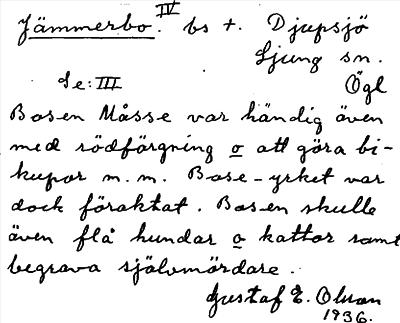 Jämmerbo. IV bs t. Djupsjö
Ljung sn.
Se: III Ögl
Bosen Måsse var händig även
med rödfärgning o att göra bi-
kupor m.m. Bose-yrket var
dock föraktat. Bosen skulle
även flå hundar o kattor samt
begrava självmördare.
Gustaf E. Olsson
1936.